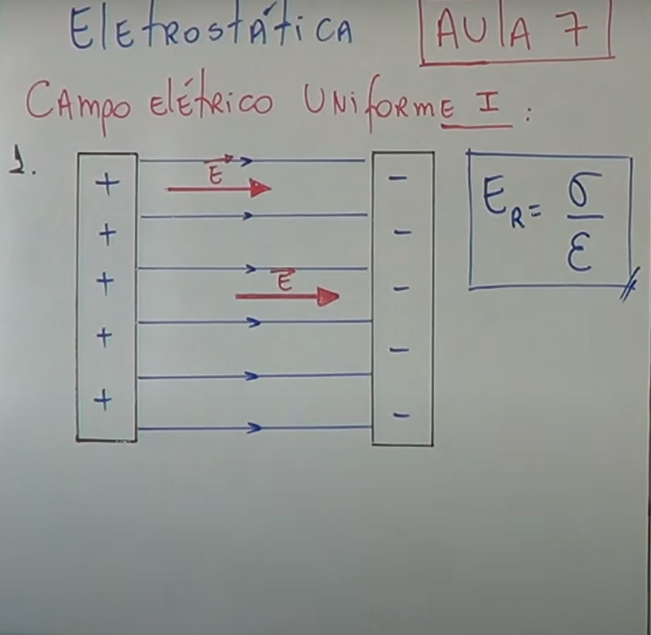 Eletrostática AULA 7
Campo elétrico Uniforme I:
1.
+ E⃗ −
+ −
+ E⃗ −
+ −
+ −
E_R = σ/ε